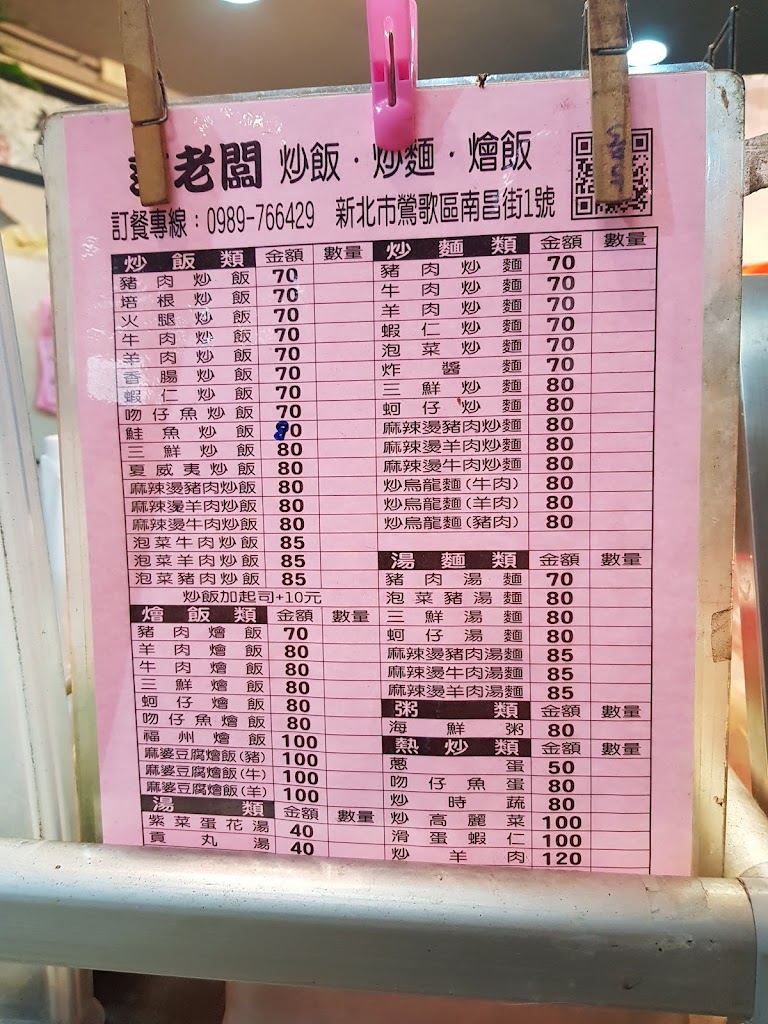 老闆 炒飯·炒麵·燴飯
訂餐專線：0989-766429 新北市鶯歌區南昌街1號
炒飯類 金額 數量
豬肉炒飯 70
培根炒飯 70
火腿炒飯 70
牛肉炒飯 70
羊肉炒飯 70
香腸炒飯 70
蝦仁炒飯 70
吻仔魚炒飯 70
鮭魚炒飯 80
三鮮炒飯 80
夏威夷炒飯 80
麻辣燙豬肉炒飯 80
麻辣燙羊肉炒飯 80
麻辣燙牛肉炒飯 80
泡菜牛肉炒飯 85
泡菜羊肉炒飯 85
泡菜豬肉炒飯 85
炒飯加起司+10元
燴飯類 金額 數量
豬肉燴飯 70
羊肉燴飯 80
牛肉燴飯 80
三鮮燴飯 80
蚵仔燴飯 80
吻仔魚燴飯 80
福州燴飯 100
麻婆豆腐燴飯(豬) 100
麻婆豆腐燴飯(牛) 100
麻婆豆腐燴飯(羊) 100
湯類 金額 數量
紫菜蛋花湯 40
貢丸湯 40
炒麵類 金額 數量
豬肉炒麵 70
牛肉炒麵 70
羊肉炒麵 70
蝦仁炒麵 70
泡菜炒麵 70
炸醬麵 70
三鮮炒麵 80
蚵仔炒麵 80
麻辣燙豬肉炒麵 80
麻辣燙羊肉炒麵 80
麻辣燙牛肉炒麵 80
炒烏龍麵(牛肉) 80
炒烏龍麵(羊肉) 80
炒烏龍麵(豬肉) 80
湯麵類 金額 數量
豬肉湯麵 70
泡菜豬湯麵 80
三鮮湯麵 80
蚵仔湯麵 80
麻辣燙豬肉湯麵 85
麻辣燙牛肉湯麵 85
麻辣燙羊肉湯麵 85
粥類 金額 數量
海鮮粥 80
熱炒類 金額 數量
蔥蛋 50
吻仔魚蛋 80
炒時蔬 80
炒高麗菜 100
滑蛋蝦仁 100
炒羊肉 120